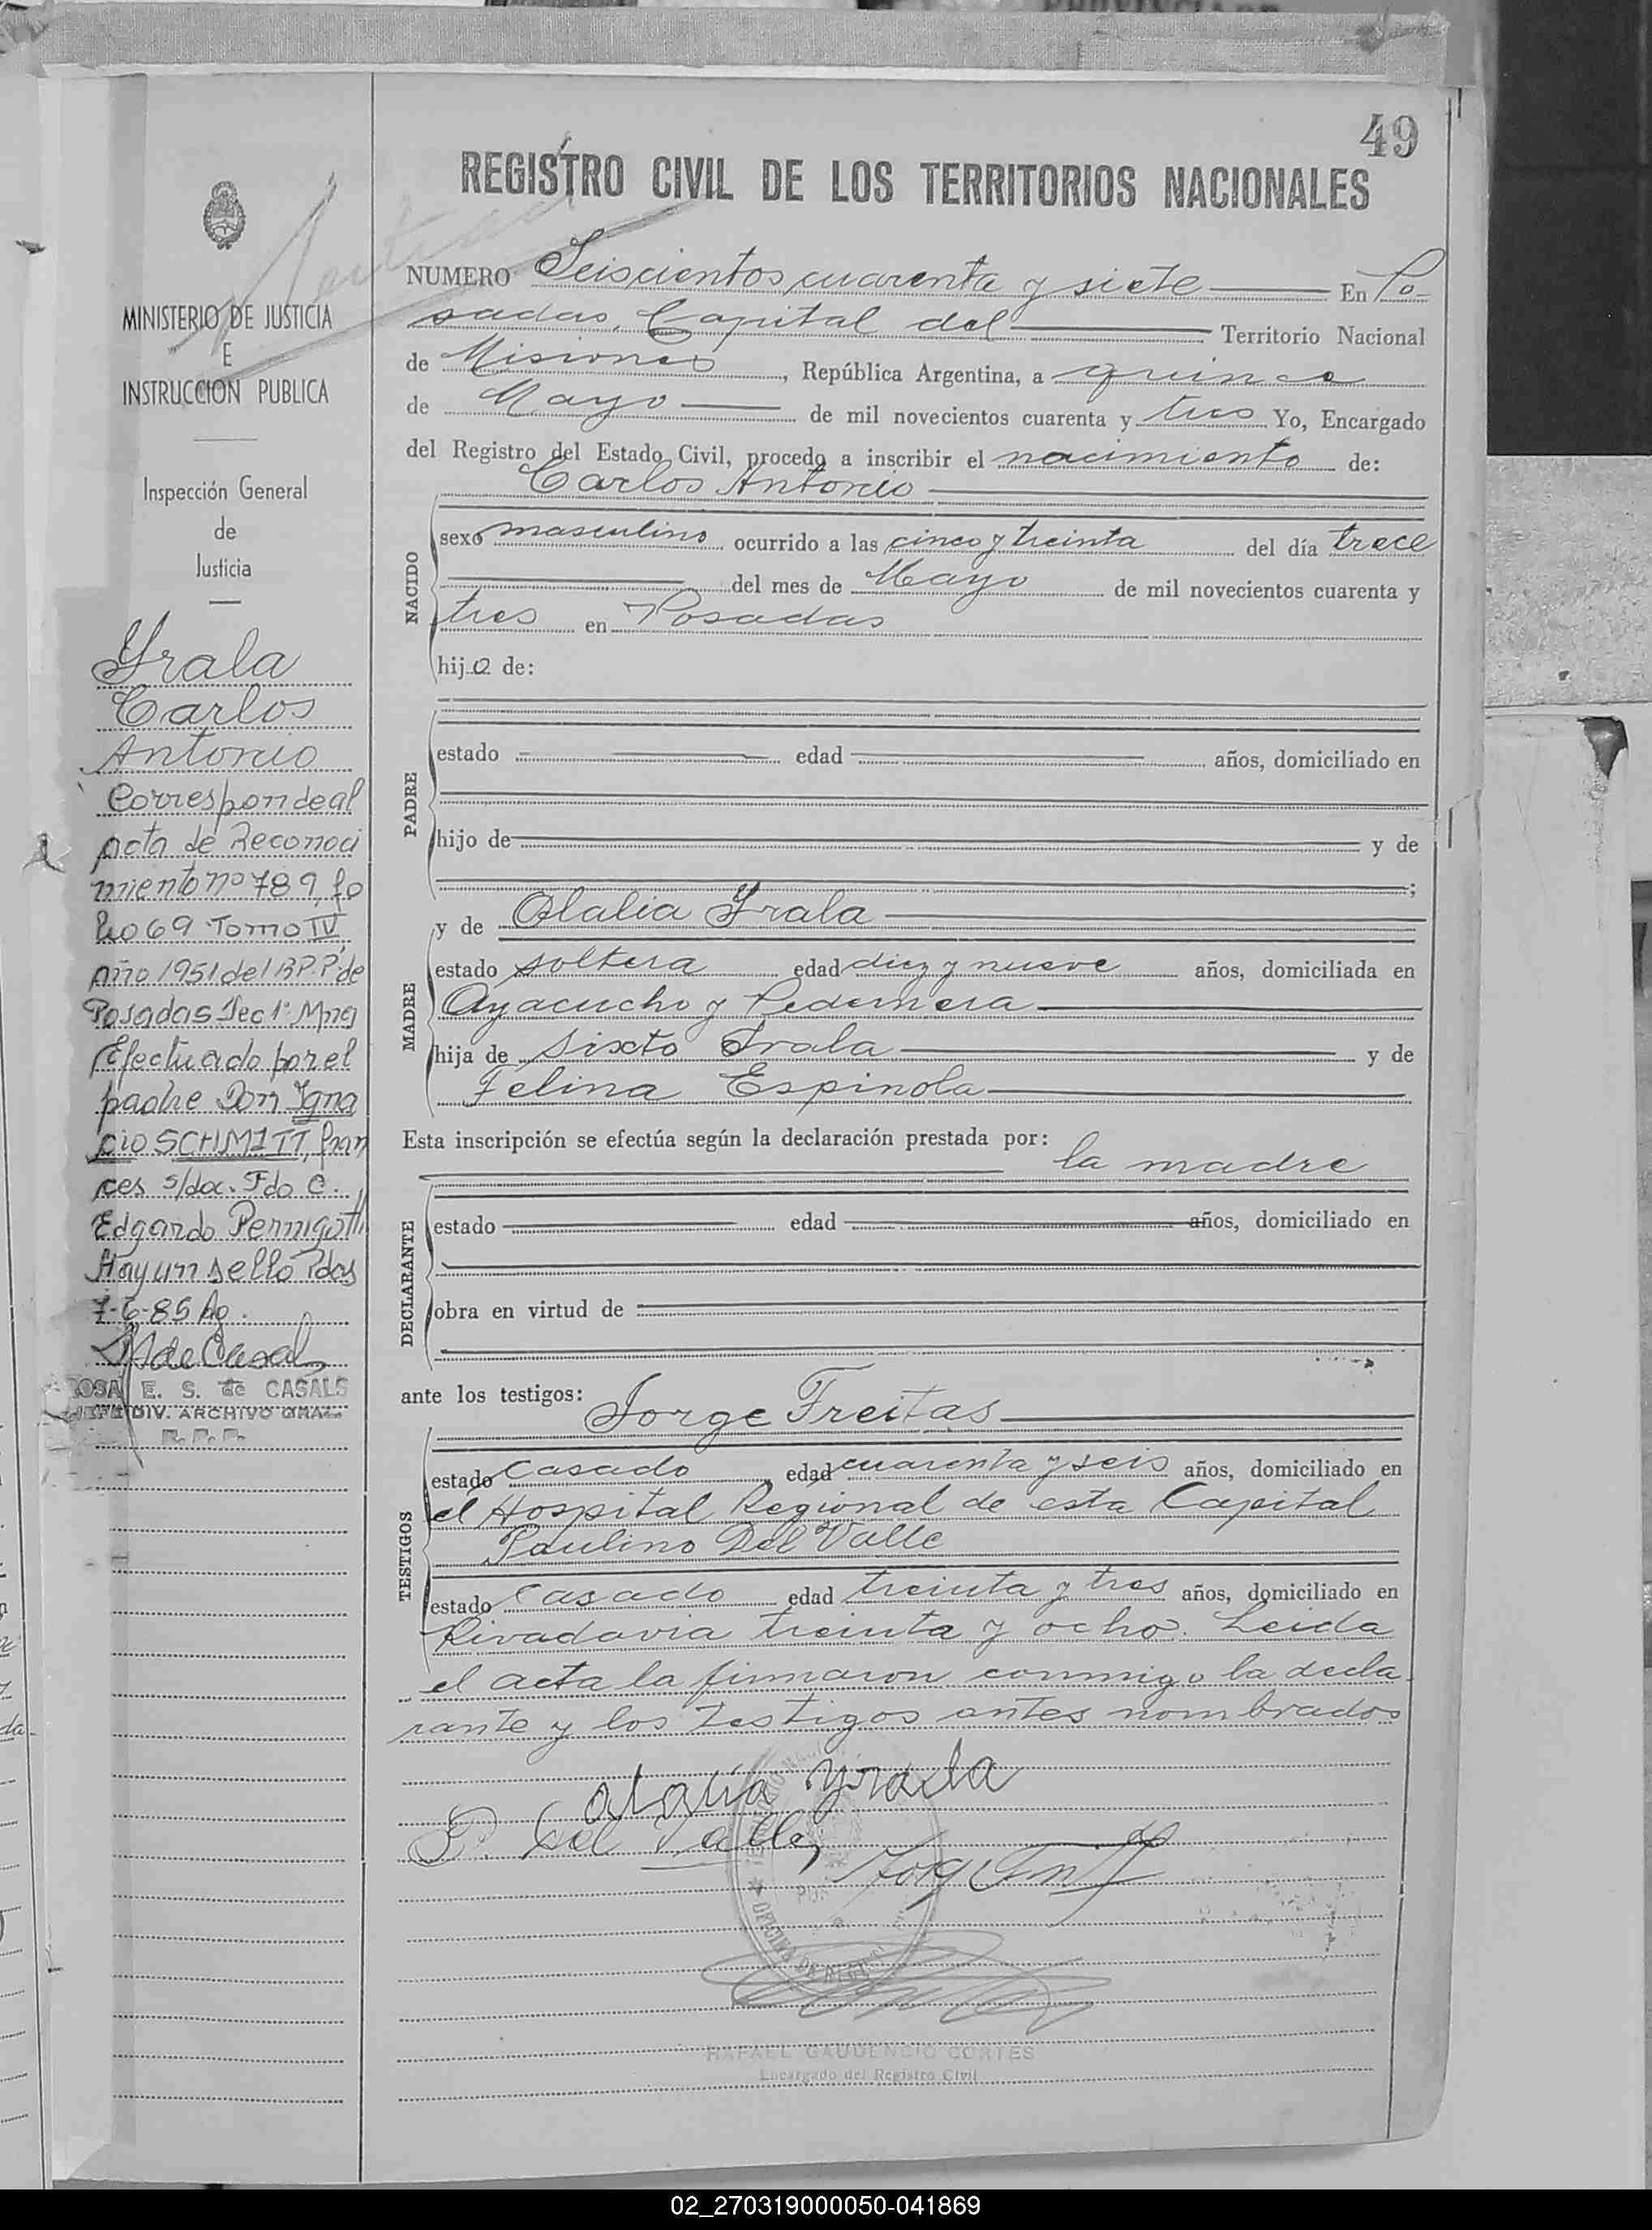 49
REGISTRO CIVIL DE LOS TERRITORIOS NACIONALES
MINISTERIO DE JUSTICIA
E
INSTRUCCION PUBLICA
Inspección General
de
Justicia
Yrala
Carlos
Antonio
Corresponde al
acta de Reconoci
miento nº 789, fo
lio 69 Tomo IV,
Año 1951 del R.P.P. de
Posadas Sec 1ª Mnes
Efectuado por el
padre Don Igna
cio SCHMITT, fran
ces s/doc. Fdo C.
Edgardo Pernigotti
Hay un sello Pdas
7-6-85
de Casals
ROSA E. S. de CASALS
JEFE DIV. ARCHIVO GRAL.
R. P. P.
NUMERO Seiscientos cuarenta y siete En Po-
sadas, Capital del Territorio Nacional
de Misiones, República Argentina, a quince
de Mayo de mil novecientos cuarenta y tres Yo, Encargado
del Registro del Estado Civil, procedo a inscribir el nacimiento de:
Carlos Antonio
NACIDO
sexo masculino ocurrido a las cinco y treinta del día trece
del mes de Mayo de mil novecientos cuarenta y
tres en Posadas
hijo de:
PADRE
estado edad años, domiciliado en
hijo de y de
;
y de Olalia Yrala
MADRE
estado soltera edad diez y nueve años, domiciliada en
Ayacucho y Pedernera
hija de Sixto Irala y de
Felina Espinola
Esta inscripción se efectúa según la declaración prestada por:
la madre
DECLARANTE
estado edad años, domiciliado en
obra en virtud de
ante los testigos: Jorge Freitas
TESTIGOS
estado casado, edad cuarenta y seis años, domiciliado en
el Hospital Regional de esta Capital
Paulino Del Valle
estado casado edad treinta y tres años, domiciliado en
Rivadavia treinta y ocho. Leida
el acta la firmaron conmigo la decla-
rante y los testigos antes nombrados
Olalia Yrala
P. Del Valle
RAFAEL GAUDENCIO CORTES
Encargado del Registro Civil
02_270319000050-041869